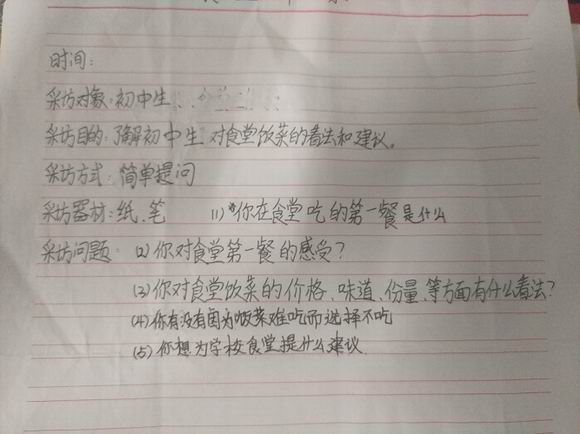 时间：
采访对象：初中生、
采访目的：了解初中生 对食堂饭菜的看法和建议。
采访方式：简单提问
采访器材：纸、笔 (1)你在食堂吃的第一餐是什么
采访问题：(2)你对食堂第一餐的感受？
(3)你对食堂饭菜的价格、味道、份量、等方面有什么看法？
(4)你有没有因为饭菜难吃而选择不吃
(5)你想为学校食堂提什么建议